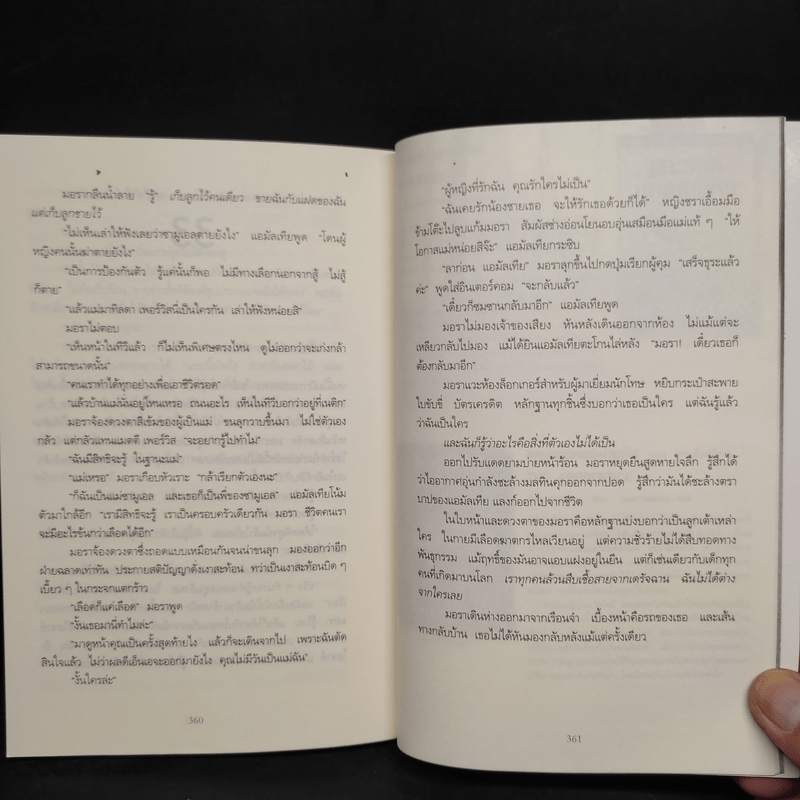 มอรากลืนน้ำลาย "รู้ เก็บลูกไว้คนเดียว ขายฉันกับแฝดของฉัน
แต่เก็บลูกชายไว้
"ไม่เห็นเล่าให้ฟังเลยว่าซามูเอลตายยังไง" แอมัลเทียพูด "โดนผู้
หญิงคนนั้นฆ่าตายยังไง"
"เป็นการป้องกันตัว รู้แค่นั้นก็พอ ไม่มีทางเลือกนอกจากสู้ ไม่สู้
ก็ตาย"
"แล้วแม่มาทิลดา เพอร์วิสนี่เป็นใครกัน เล่าให้ฟังหน่อยสิ"
มอราไม่ตอบ
"เห็นหน้าในทีวีแล้ว ก็ไม่เห็นพิเศษตรงไหน ดูไม่ออกว่าจะเก่งกล้า
สามารถขนาดนั้น"
"คนเราทำได้ทุกอย่างเพื่อเอาชีวิตรอด"
"แล้วบ้านแม่นั่นอยู่ไหนเหรอ ถนนอะไร เห็นในทีวีบอกว่าอยู่ที่เนติก"
มอราจ้องดวงตาสีเข้มของผู้เป็นแม่ ขนลุกวาบขึ้นมา ไม่ใช่ตัวเอง
กลัว แต่กลัวแทนแมตตี เพอร์วิส "จะอยากรู้ไปทำไม"
"ฉันมีสิทธิจะรู้ ในฐานะแม่"
"แม่เหรอ" มอราเกือบหัวเราะ "กล้าเรียกตัวเองนะ"
"ก็ฉันเป็นแม่ซามูเอล และเธอก็เป็นพี่ของซามูเอล" แอมัลเทียโน้ม
ตัวมาใกล้อีก "เรามีสิทธิจะรู้ เราเป็นครอบครัวเดียวกัน มอรา ชีวิตคนเรา
จะมีอะไรข้นกว่าเลือดได้อีก"
มอราจ้องดวงตาซึ่งถอดแบบเหมือนกันจนน่าขนลุก มองออกว่าอีก
ฝ่ายฉลาดเท่าทัน ประกายสติปัญญาดั่งเงาสะท้อน ทว่าเป็นเงาสะท้อนบิด ๆ
เบี้ยว ๆ ในกระจกแตกร้าว
"เลือดก็แค่เลือด" มอราพูด
"งั้นเธอมานี่ทำไมล่ะ"
"มาดูหน้าคุณเป็นครั้งสุดท้ายไง แล้วก็จะเดินจากไป เพราะฉันตัด
สินใจแล้ว ไม่ว่าผลดีเอ็นเอจะออกมายังไง คุณไม่มีวันเป็นแม่ฉัน"
"งั้นใครล่ะ"
360
"ผู้หญิงที่รักฉัน คุณรักใครไม่เป็น"
"ฉันเคยรักน้องชายเธอ จะให้รักเธอด้วยก็ได้" หญิงชราเอื้อมมือ
ข้ามโต๊ะไปลูบแก้มมอรา สัมผัสช่างอ่อนโยนอบอุ่นเสมือนมือแม่แท้ ๆ "ให้
โอกาสแม่หน่อยสิจ๊ะ" แอมัลเทียกระซิบ
"ลาก่อน แอมัลเทีย" มอราลุกขึ้นไปกดปุ่มเรียกผู้คุม "เสร็จธุระแล้ว
ค่ะ" พูดใส่อินเตอร์คอม "จะกลับแล้ว"
"เดี๋ยวก็ซมซานกลับมาอีก" แอมัลเทียพูด
มอราไม่มองเจ้าของเสียง หันหลังเดินออกจากห้อง ไม่แม้แต่จะ
เหลียวกลับไปมอง แม้ได้ยินแอมัลเทียตะโกนไล่หลัง "มอรา! เดี๋ยวเธอก็
ต้องกลับมาอีก"
มอราแวะห้องล็อกเกอร์สำหรับผู้มาเยี่ยมนักโทษ หยิบกระเป๋าสะพาย
ใบขับขี่ บัตรเครดิต หลักฐานทุกชิ้นซึ่งบอกว่าเธอเป็นใคร แต่ฉันรู้แล้ว
ว่าฉันเป็นใคร
และฉันก็รู้ว่าอะไรคือสิ่งที่ตัวเองไม่ได้เป็น
ออกไปรับแดดยามบ่ายหน้าร้อน มอราหยุดยืนสูดหายใจลึก รู้สึกได้
ว่าไออากาศอุ่นกำลังชะล้างมลทินคุกออกจากปอด รู้สึกว่ามันได้ชะล้างตรา
บาปของแอมัลเทีย แลงก์ออกไปจากชีวิต
ในใบหน้าและดวงตาของมอราคือหลักฐานบ่งบอกว่าเป็นลูกเต้าเหล่า
ใคร ในกายมีเลือดฆาตกรไหลเวียนอยู่ แต่ความชั่วร้ายไม่ได้สืบทอดทาง
พันธุกรรม แม้ฤทธิ์ของมันอาจแอบแฝงอยู่ในยีน แต่ก็เช่นเดียวกับเด็กทุก
คนที่เกิดมาบนโลก เราทุกคนล้วนสืบเชื้อสายจากเดรัจฉาน ฉันไม่ได้ต่าง
จากใครเลย
มอราเดินห่างออกมาจากเรือนจำ เบื้องหน้าคือรถของเธอ และเส้น
ทางกลับบ้าน เธอไม่ได้หันมองกลับหลังแม้แต่ครั้งเดียว
361